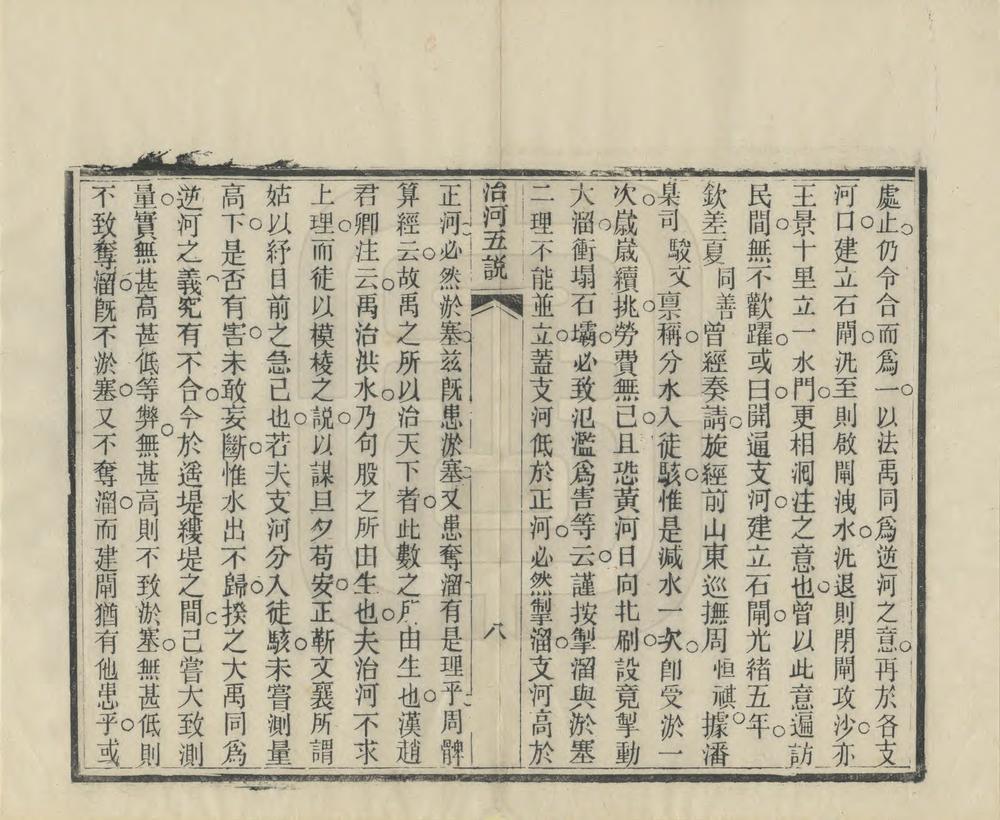 處止仍令合而爲一以法禹同爲逆河之意再於各支
河口建立石閘汛至則啟閘洩水汛退則閉閘攻沙亦
王景十里立一水門更相洄注之意也曾以此意遍訪
民間無不歡躍或曰開通支河建立石閘光緒五年
欽差夏同善曾經奏請旋經前山東巡撫周恒祺據潘
臬司駿文稟稱分水入徒駭惟是減水一次卽受淤一
次歲歲續挑勞費無已且恐黃河日向北刷設竟掣動
大溜衝塌石壩必致氾濫爲害等云謹按掣溜與淤塞
二理不能並立蓋支河低於正河必然掣溜支河高於
治河五說
八
正河必然淤塞茲旣患淤塞又患奪溜有是理乎周髀
算經云故禹之所以治天下者此數之所由生也漢趙
君卿注云禹治洪水乃句股之所由生也夫治河不求
上理而徒以模棱之說以謀旦夕苟安正靳文襄所謂
姑以紓目前之急已也若夫支河分入徒駭未嘗測量
高下是否有害未敢妄斷惟水出不歸揆之大禹同爲
逆河之義究有不合今於遙堤縷堤之間已嘗大致測
量實無甚高甚低等弊無甚高則不致淤塞無甚低則
不致奪溜旣不淤塞又不奪溜而建閘猶有他患乎或